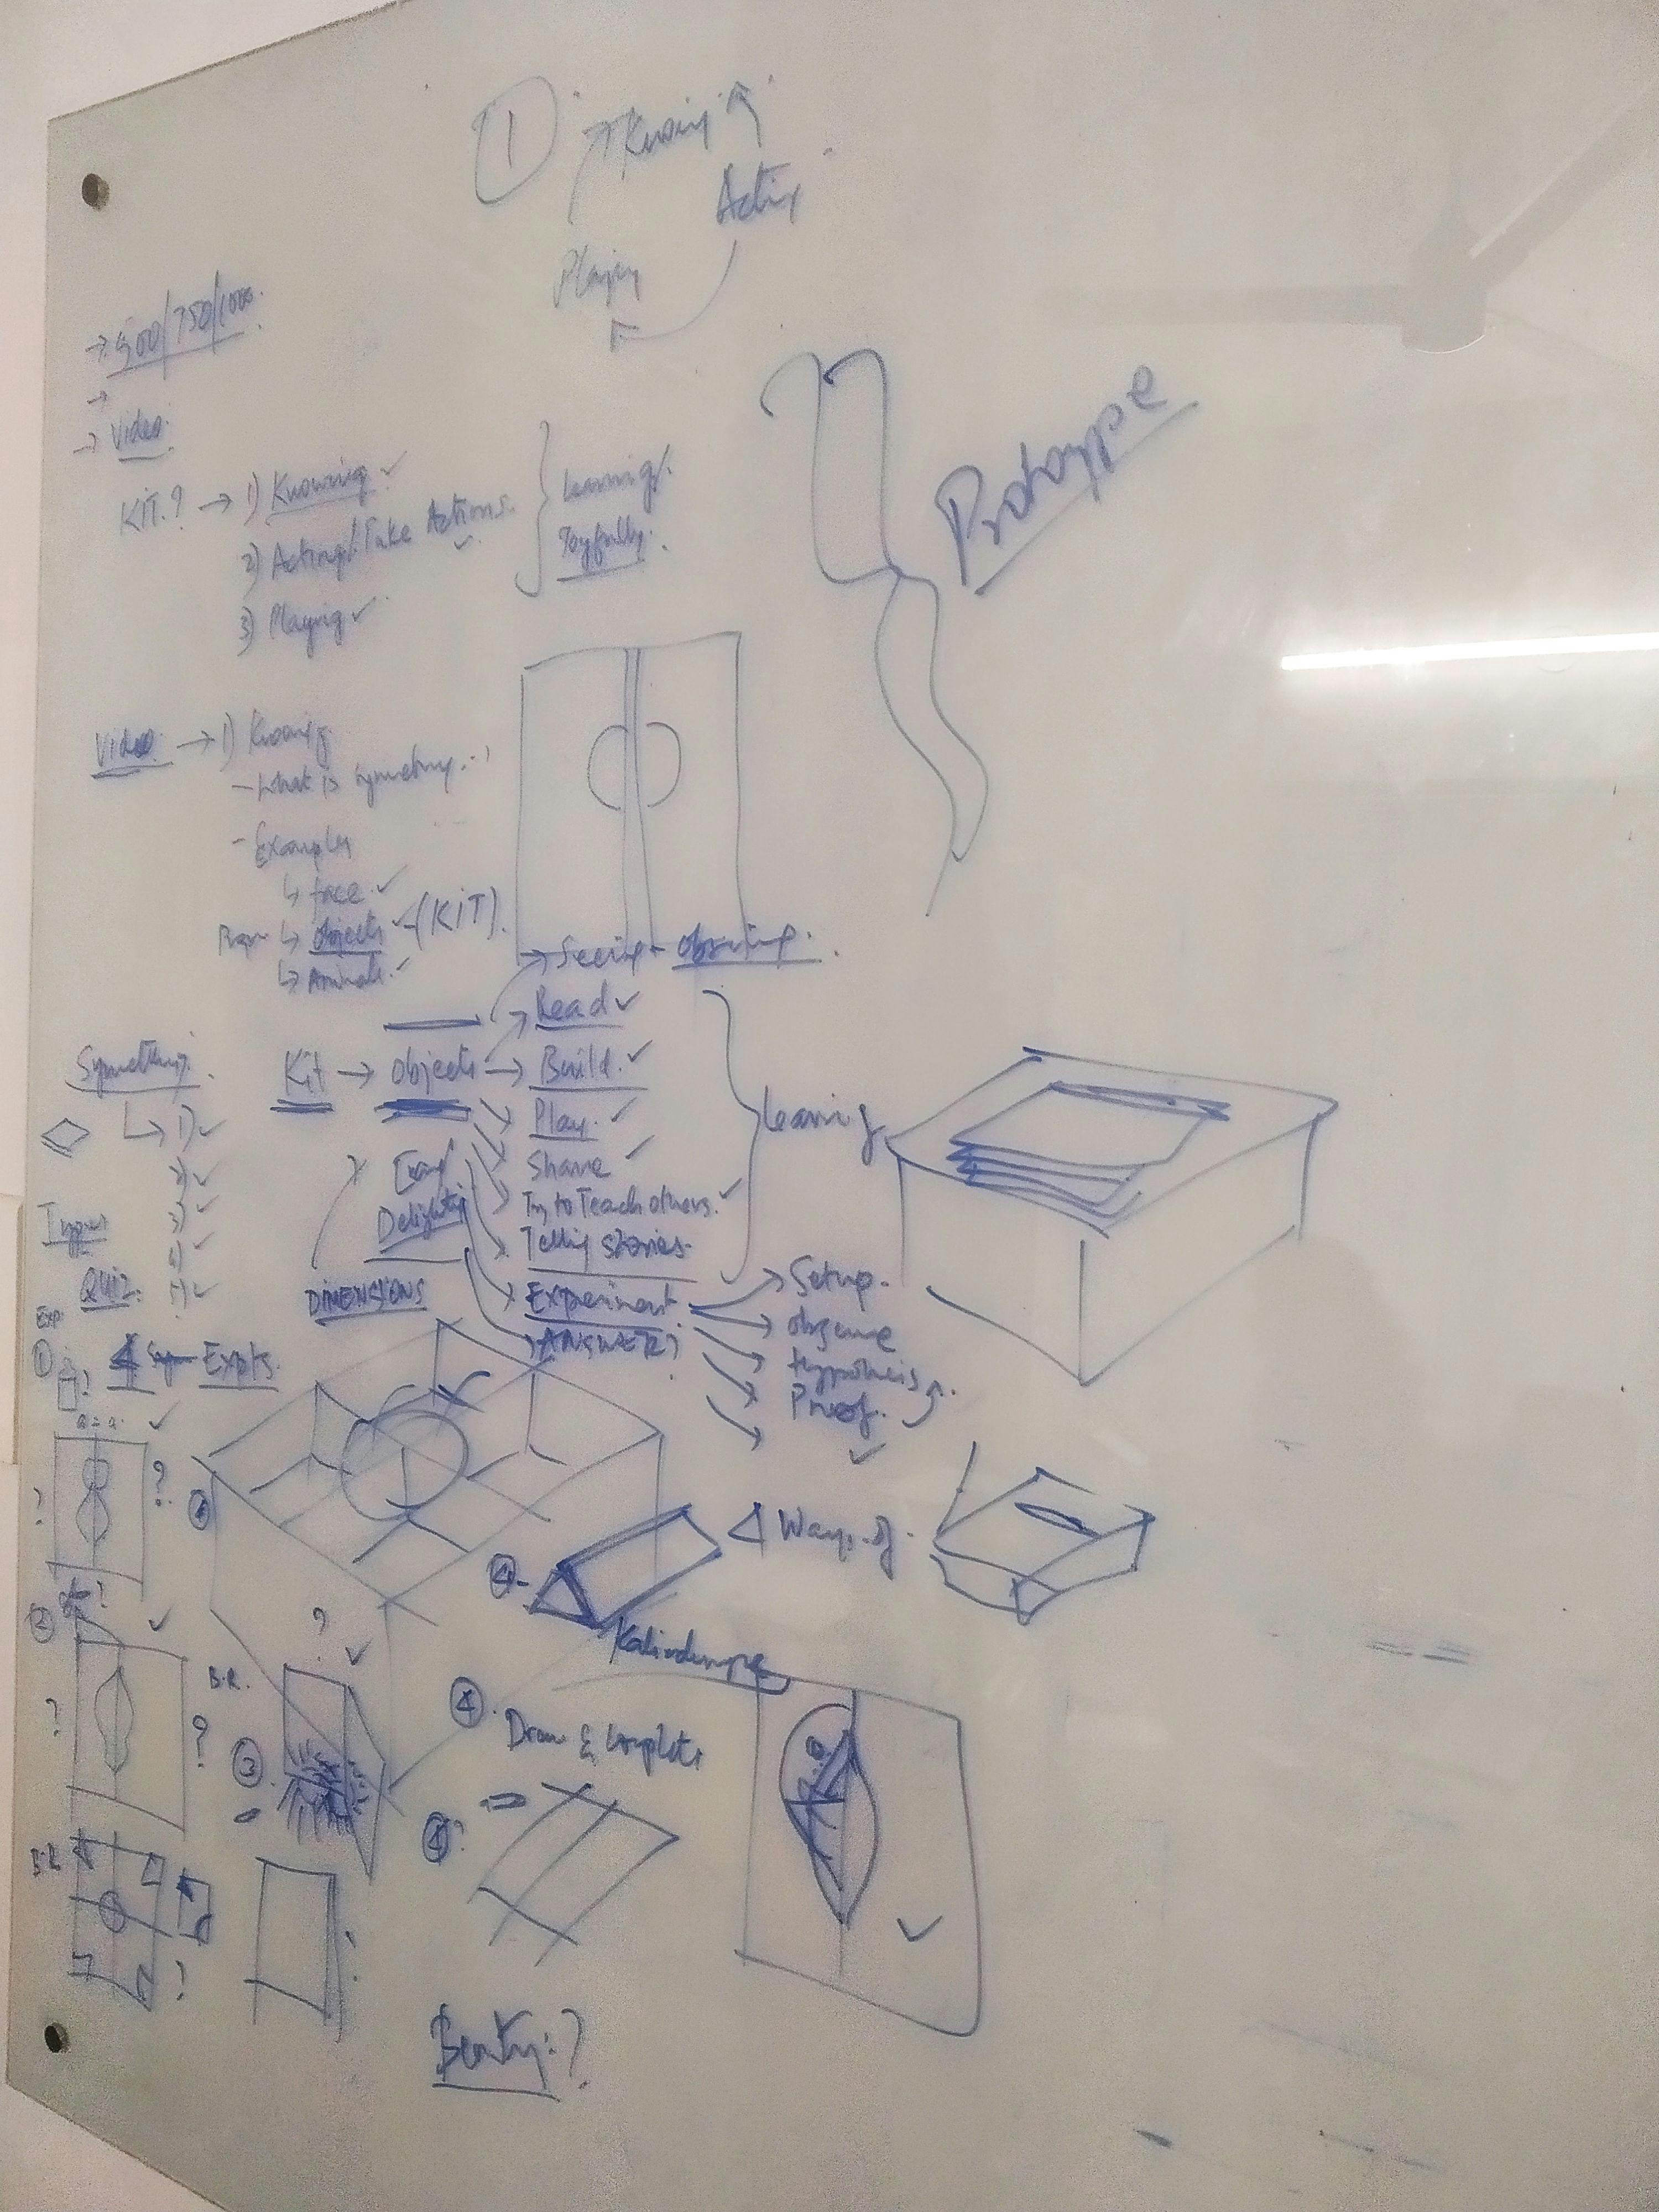 1
Knowing
Acting
Playing
→ 500/750/1000.
→
→ Video.
Prototype
KIT.? → 1) Knowing ✓
2) Acting/Take Actions. ✓
3) Playing ✓
Learning
Joyfully.
Video → 1) Knowing
- What is symmetry..?
- Examples
↳ face ✓
↳ objects ✓ (KIT).
↳ Animals ✓
→ Seeing - observing.
Read ✓
Kit → objects → Build. ✓
Play. ✓
Share ✓
Try to Teach others. ✓
Telling stories.
Experiment
ANSWER?
Learning
Delightin
DIMENSIONS
→ Setup.
→ observe
Hypothesis
Proof.
✓
Symmetry.
↳ 1) ✓
2) ✓
3) ✓
4) ✓
5) ✓
Types
Quiz.
Exp
① ?
Expts.
a = a. ✓
? ?
② ? ✓
? ?
B.R.
? ✓
③
④
4 Ways of.
Kaliodscope
④. Draw & Complete
?
B.R.
?
✓
Beauty:?